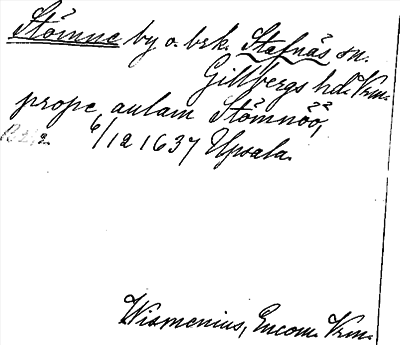 Stömne by o. brk. Stafnäs sn.
Gillbergs hd. Vrm.
prope aulam Stömnöö,
6/12 1637 Upsala.
Wismenius, Encom. Vrm.